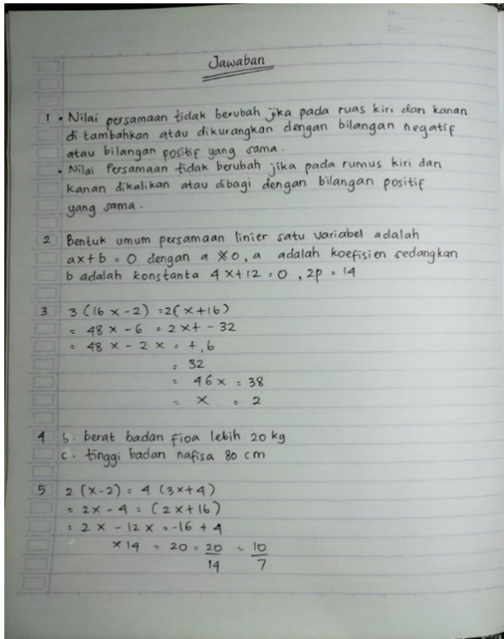 Jawaban
1 • Nilai persamaan tidak berubah jika pada ruas kiri dan kanan
di tambahkan atau dikurangkan dengan bilangan negatif
atau bilangan positif yang sama.
• Nilai Persamaan tidak berubah jika pada rumus kiri dan
kanan dikalikan atau dibagi dengan bilangan positif
yang sama.
2 Bentuk umum persamaan linier satu variabel adalah
ax + b = 0 dengan a ≠ 0, a adalah koefisien sedangkan
b adalah konstanta 4x + 12 = 0, 2p = 14
3 3 (16x - 2) = 2(x + 16)
= 48x - 6 = 2x + - 32
= 48x - 2x = +, 6
= 32
= 46x = 38
= x = 2
4 b. berat badan fioa lebih 20 kg
c. tinggi badan nafisa 80 cm
5 2 (x-2) = 4 (3x+4)
= 2x - 4 = (2x + 16)
= 2x - 12x = -16 + 4
x 14 = 20 = 20/14 = 10/7